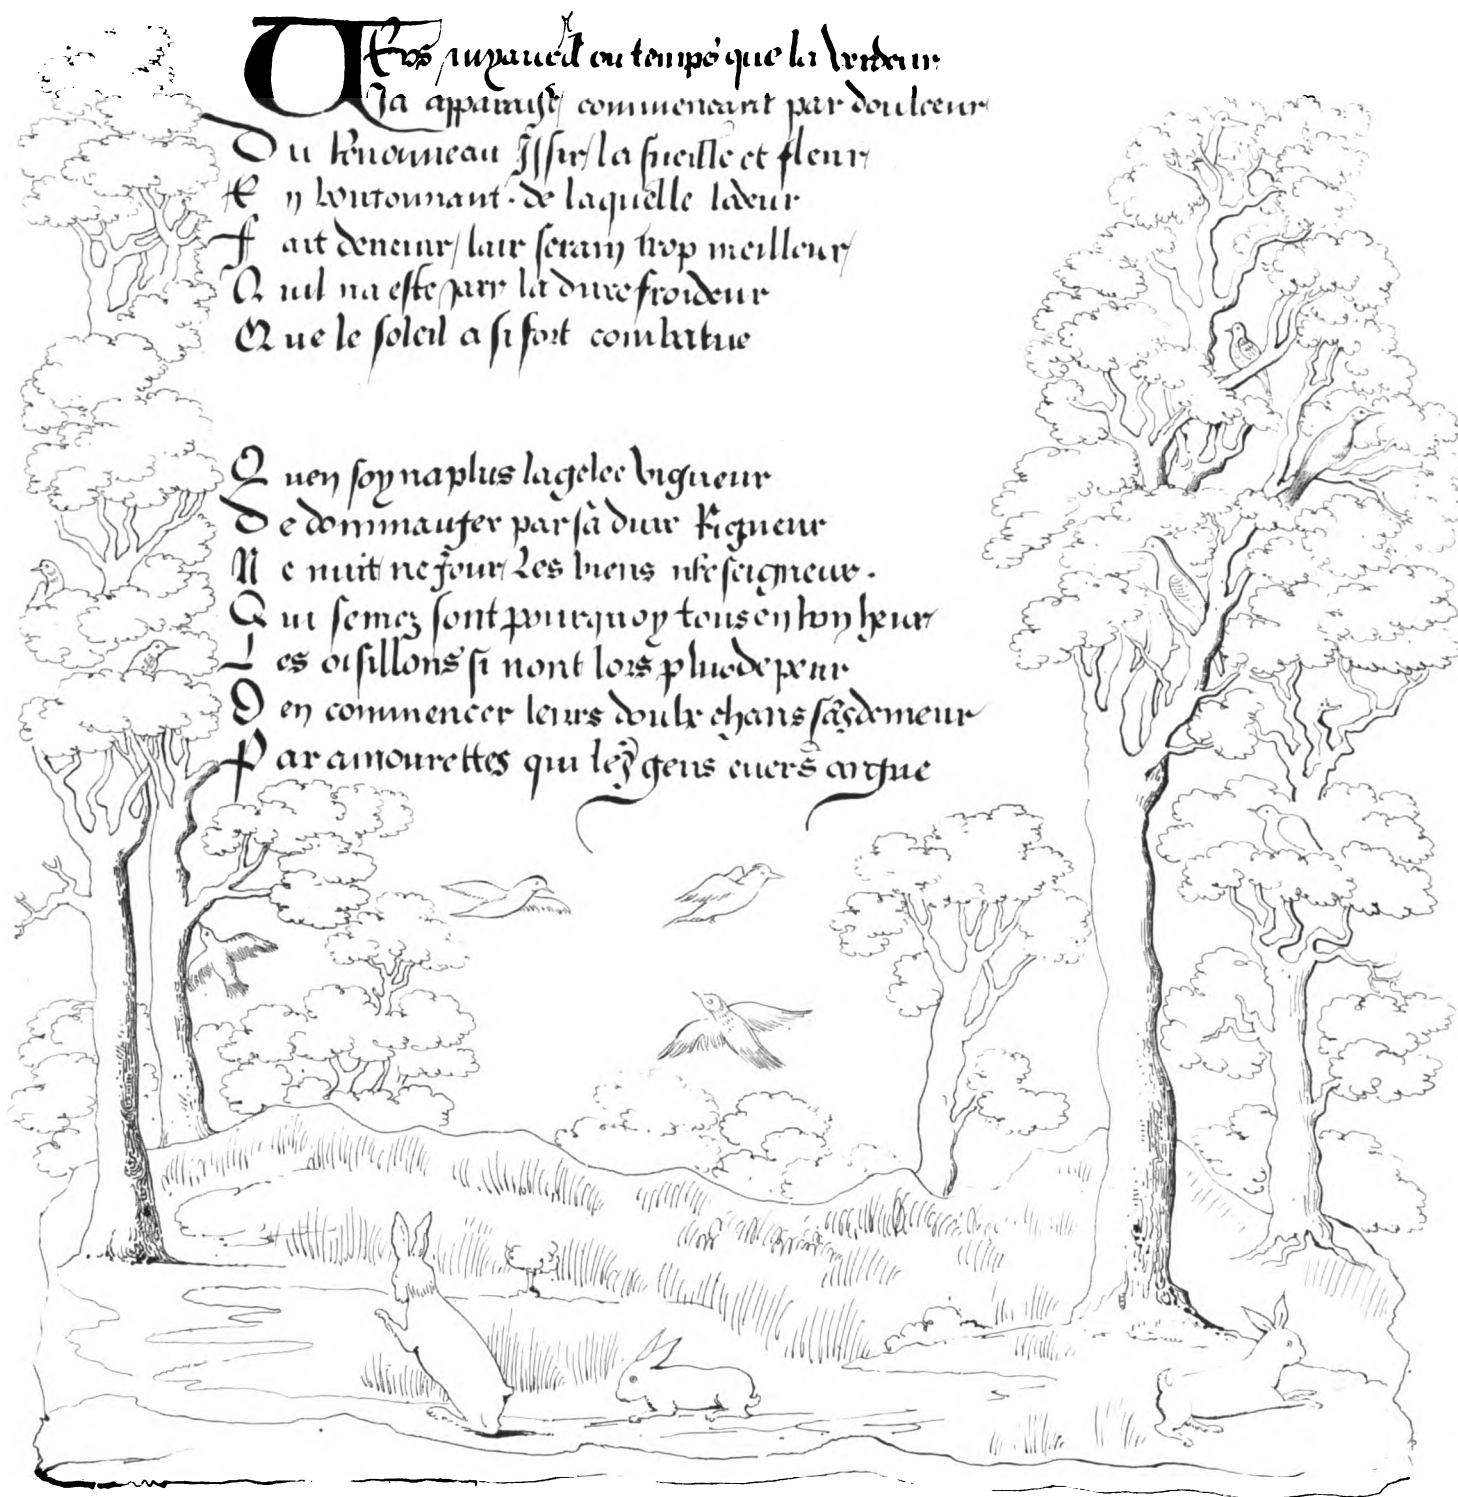 Vers my avril ou temps que la verdeur
Ja apparaist / commencant par doulceur
Du Renouueau Issir / la fueille et fleur /
En boutonnant . de laquelle lodeur
Fait deuenir / lair serain trop meilleur /
Quil na este par la dure froideur
Que le soleil a si fort combatue
Quen soy na plus la gelee vigueur
De dommaiger par sa dure Rigueur
Ne nuit ne jour / Les biens nre seigneur .
Qui semez sont pourquoy tous en bon heur /
Les oisillons si nont lors plus de peur
Den commencer leurs doulx chans sãs demeur
Par amourettes qui les gens euers argue